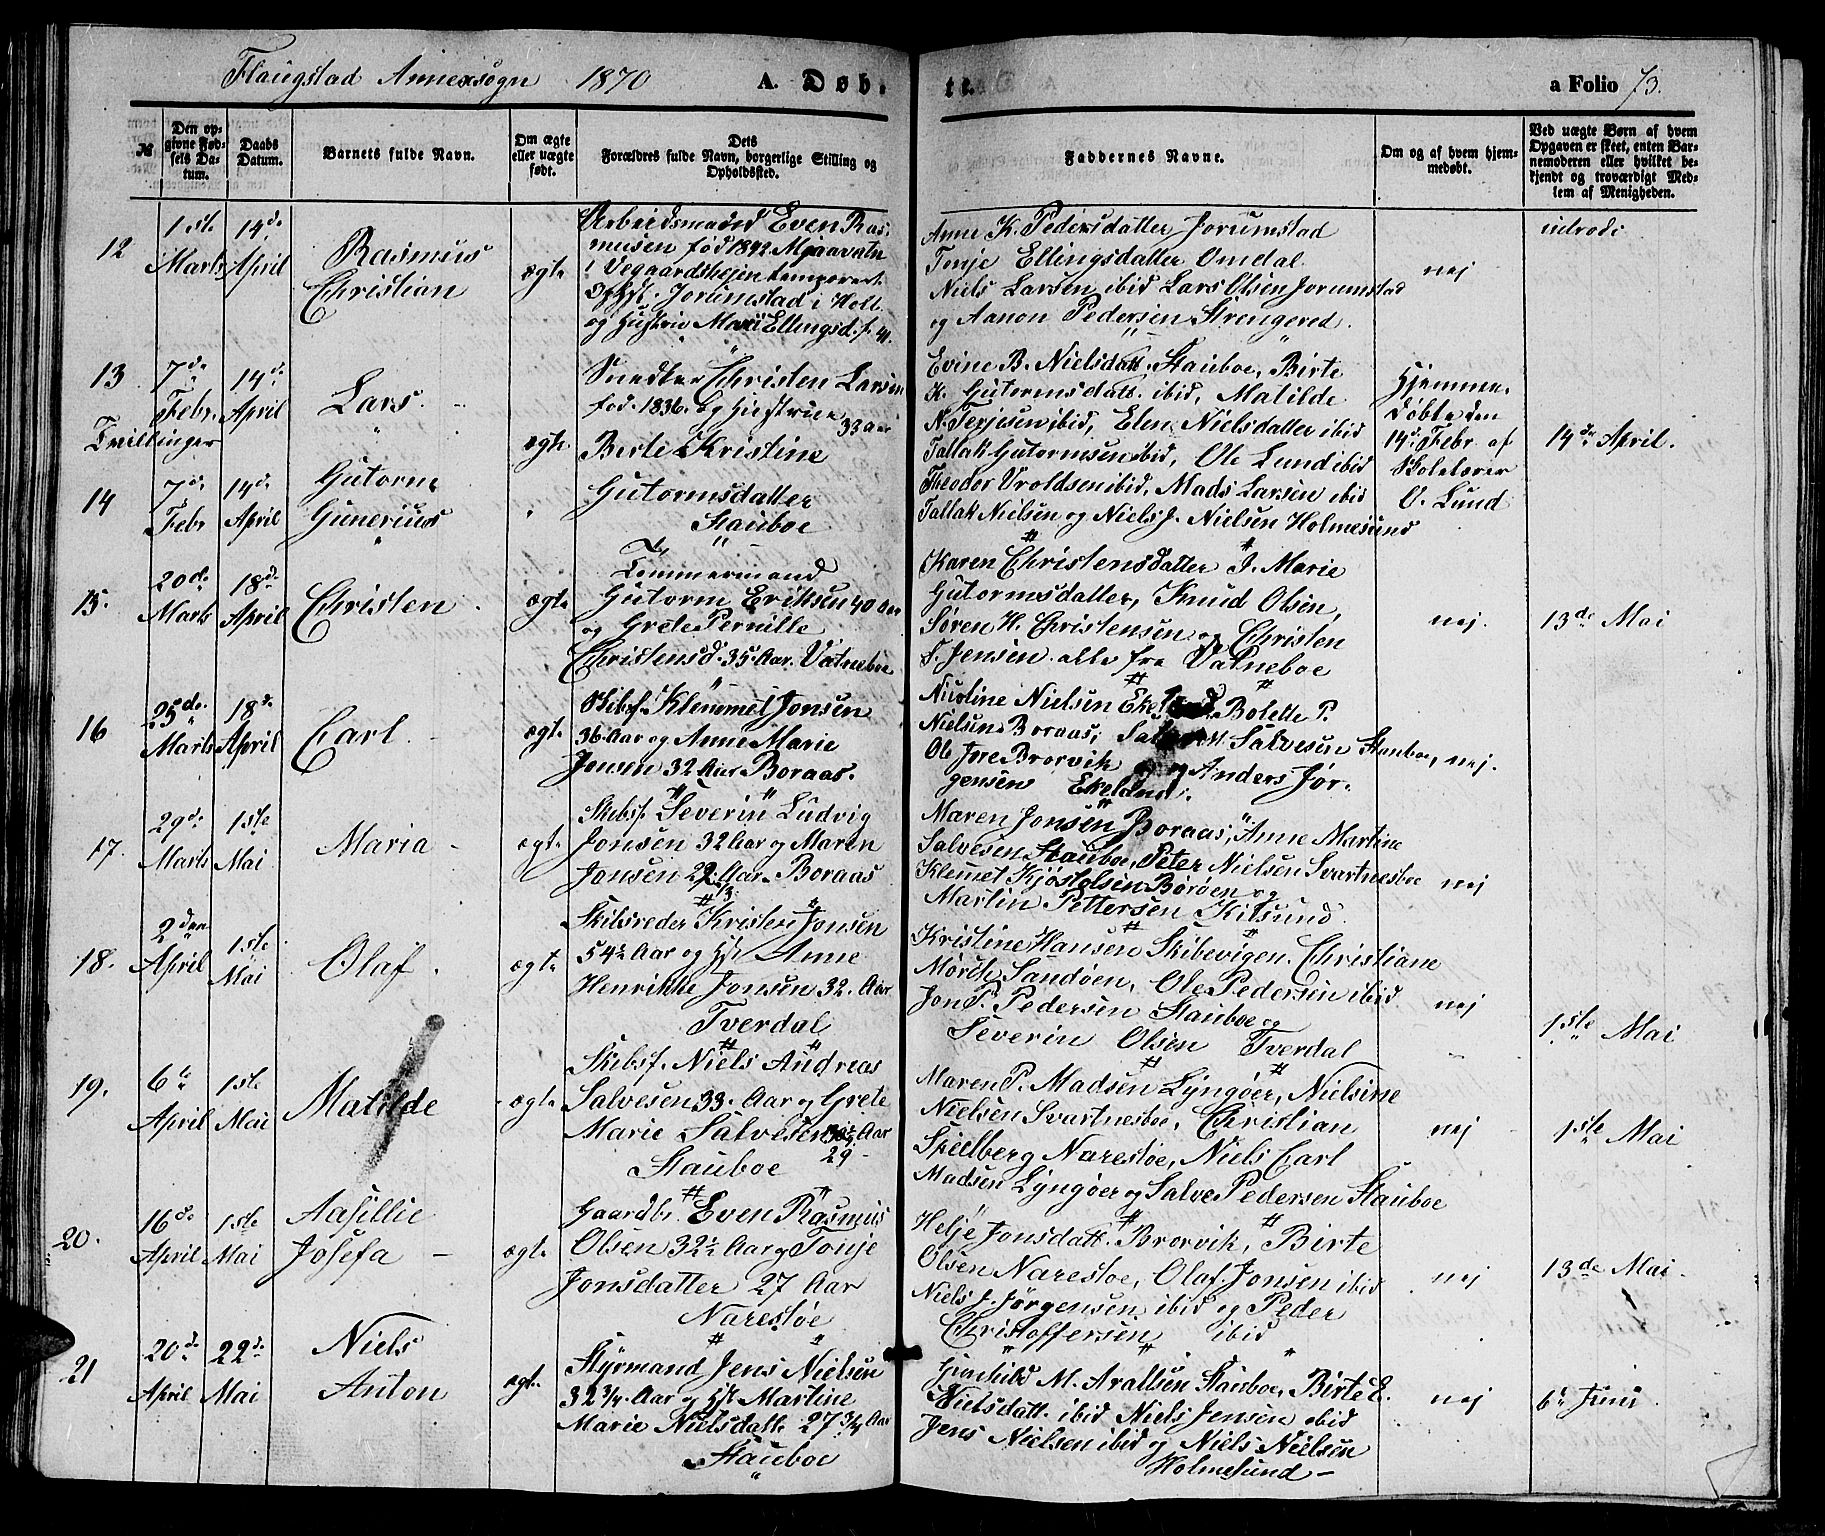 Flaugstad Annexsogn 1870 A. Døbte. a Folio 73.
№
Den opgivne Fødsels Datum.
Daabs Datum.
Barnets fulde Navn.
Om ægte eller uægte født.
Dets Forældres fulde Navn, borgerlige Stilling og Opholdsted.
Faddernes Navne.
Om og af hvem hjemmedøbt.
Ved uægte Børn af hvem Opgaven er skeet, enten Barnemoderen eller hvilket bekjendt og troværdigt Medlem af Menigheden.
12
1ste Marts
14de April
Rasmus
Christian
ægte
Arbeidsmand Even Ras-
musen fød 1842 Mjaavatn
i Vegaardsheien temporert
Ophh. Jorumstad i Holt
og Hustrue Mari Ellingsd. f. 41.
Anne K. Pedersdatter Jorumstad
Tonje Ellingsdatter Omdal
Niels Larsen ibid Lars Olsen Jorumstad
og Aanon Pedersen Strengered.
nej
13
7de Febr.
14de April
Lars.
Tvillinger
ægte.
Snedker Christen Larsen
fød. 1836. og Hustrue
33 Aar
Berte Kristine
Gutormsdatter
Stauboe
Evine B. Nielsdatt. Stauboe, Birte
K. Gutormsdatt. ibid, Matilde
N. Terjesen ibid, Elen Nielsdatter ibid
Tallak Gutormsen ibid, Ole Lund ibid
Theodor Vroldsen ibid, Mads Larsen ibid
Tallak Nielsen og Niels J. Nielsen Holmesund
Hjemme-
døbte den
14de Febr. af
Skolelærer
O. Lund
14de April.
14
7de Febr
14de April
Gutorm
Gunerius
15.
20de Marts
18de April
Christen
ægte
Tømmermand
Gutorm Eriksen 40 Aar
og Grete Pernille
Christensd. 35. Aar. Vatneboe
Karen Christensdatter I. Marie
Gutormsdatter, Knud Olsen,
Søren H. Christensen og Christen
F. Jensen. alle fra Vatneboe
nej.
13de Mai
16
25de Marts
18de April
Carl
ægte
Skibsf. Klemmet Jonsen
36. Aar og Anne Marie
Jonsen 32 Aar Boraas.
Nicoline Nielsen Bolette P.
Nielsen Boraas, Salvesen Stauboe,
Ole Jore Brorvik og Anders Jør-
gensen Ekeland.
nej.
17.
29de Marts
1ste Mai
Maria
ægte
Skibsf. Severin Ludvig
Jonsen 32 Aar og Maren
Jonsen 22 Aar. Boraas
Maren Jonsen Boraas, Anne Martine
Salvesen Stauboe, Peter Nielsen Svartnesboe
Klemet Kjøstolsen Børøen og
Martin Pettersen Kilsund
nej
18.
2den April
1ste Mai
Olaf.
ægte
Skibsreder Kristen Jonsen
54½ Aar og Hst Anne
Henrikke Jonsen 32. Aar
Tverdal
Kristine Hansen Skibevigen. Christiane
Mørch Sandøen, Ole Pedersen ibid.
Jon P. Pedersen Stauboe og
Severin Olsen Tverdal
nej
1ste Mai
19.
6te April
1ste Mai
Matilde
ægte
Skibsf. Niels Andreas
Salvesen 33. Aar og Grete
Marie Salvesen Aar
29
Stauboe
Maren P. Madsen Lyngøer, Nielsine
Nielsen Svartnesboe, Christian
Speelberg Narestøe, Niels Carl
Madsen Lyngøer og Salve Pedersen Stauboe
nej
1ste Mai
20.
16de April
1ste Mai
Aasillie
Josefa
ægte
Gaardbr. Even Rasmus
Olsen 32½ Aar og Tonje
Jonsdatter 27 Aar
Narestøe
Helje Jonsdatt. Brorvik, Birte
Olsen Narestoe, Olaf Jonsen ibid
Niels J. Jørgensen ibid og Peder
Christoffersen ibid
nej
13de Mai
21
20de April
22de Mai
Niels
Anton
ægte
Styrmand Jens Nielsen
32 3/4 Aar og Hst Martine
Marie Nielsdatt. 27 3/4 Aar
Stauboe
Gunhild M. Aralsen Stauboe, Birte E.
Nielsdatt. ibid Niels Jensen ibid
Jens Nielsen ibid og Niels Nielsen
Holmesund
nej
6te Juni